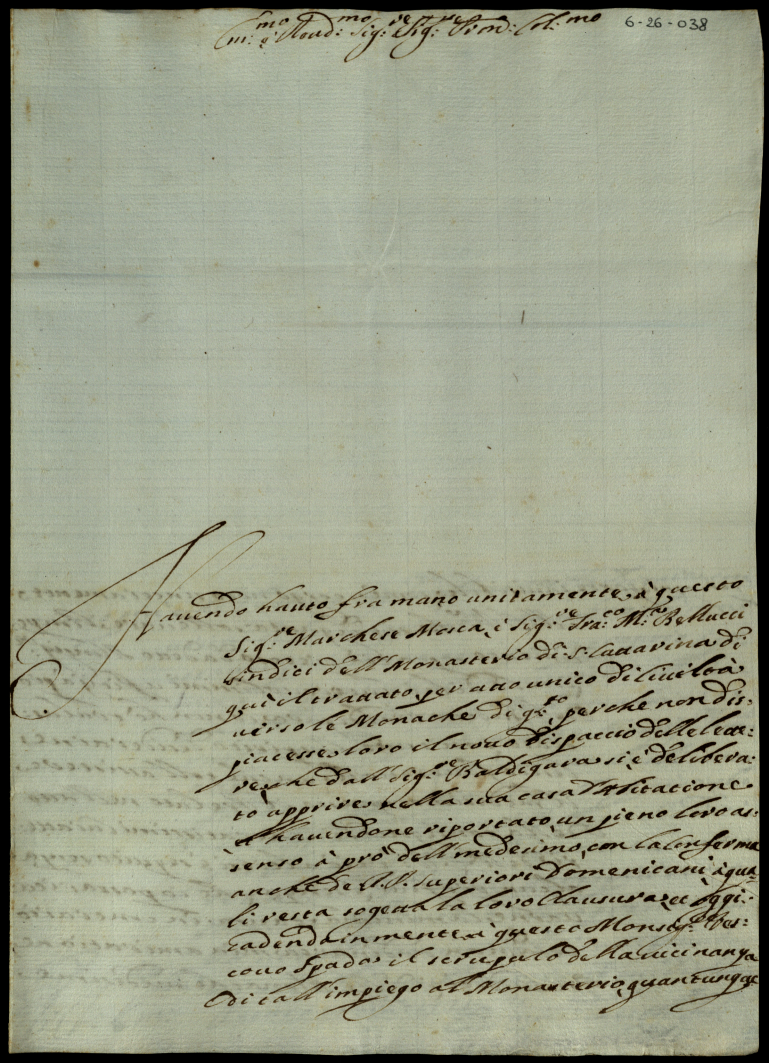 Ill:mo e Reud:mo Sig:re Sig:re Pron: Col:mo
6-26-038
Hauendo hauto fra mano unitamente à questo
Sig:re Marchese Mosca, è Sig:re Fra:co M:a Bellucci
sindici dell Monasterio di S: Cattarina di
quì il trattato per atto unico di Ciuiltà
uerso le Monache di q:sto, perche non dis:
piacesse loro il nouo dispaccio delle lette:
re, che dall Sig:re Baldigara si è delibera:
to apprire nella sua casa d'Abitacione
et hauendone riportato un pieno loro as:
senso à prò dell medesimo, con la Conferma
anche de P.P. Superiori Domenicani, à qua:
li resta sogetta la loro Clausura, et oggi
cadendo in mente à questo Monsig:re Ves:
couo Spada il scrupulo della uicinanza
di tall'impiego al Monasterio, quantunque